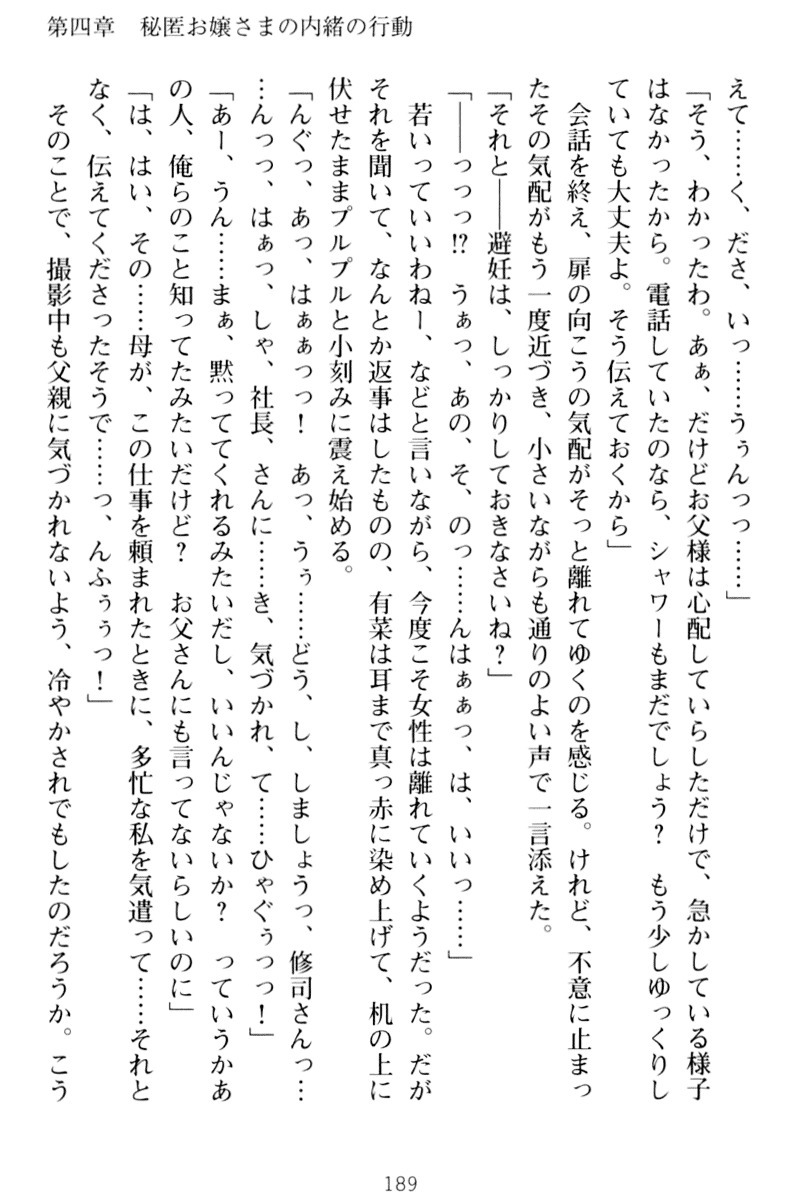 第四章　秘匿お嬢さまの内緒の行動
えて……く、ださ、いっ……うぅんっっ……」
「そう、わかったわ。あぁ、だけどお父様は心配していらしただけで、急かしている様子
はなかったから。電話していたのなら、シャワーもまだでしょう？　もう少しゆっくりし
ていても大丈夫よ。そう伝えておくから」
　会話を終え、扉の向こうの気配がそっと離れてゆくのを感じる。けれど、不意に止まっ
たその気配がもう一度近づき、小さいながらも通りのよい声で一言添えた。
「それと――避妊は、しっかりしておきなさいね？」
「――っっっ!?　うぁっ、あの、そ、のっ……んはぁぁっ、は、いいっ……」
　若いっていいわねー、などと言いながら、今度こそ女性は離れていくようだった。だが
それを聞いて、なんとか返事はしたものの、有菜は耳まで真っ赤に染め上げて、机の上に
伏せたままプルプルと小刻みに震え始める。
「んぐっ、あっ、はぁぁっっ！　あっ、うぅ……どう、し、しましょうっ、修司さんっ…
…んっっ、はぁっ、しゃ、社長、さんに……き、気づかれ、て……ひゃぐぅっっ！」
「あー、うん……まぁ、黙っててくれるみたいだし、いいんじゃないか？　っていうかあ
の人、俺らのこと知ってたみたいだけど？　お父さんにも言ってないらしいのに」
「は、はい、その……母が、この仕事を頼まれたときに、多忙な私を気遣って……それと
なく、伝えてくださったそうで……っ、んふぅぅっ！」
　そのことで、撮影中も父親に気づかれないよう、冷やかされでもしたのだろうか。こう
189